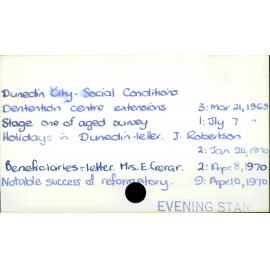 Dunedin City - Social Conditions
Dentention centre extensions 3: Mar 21, 1969
Stage one of aged survey 1: Jly 7 "
Holidays in Dunedin - letter. J. Robertson
2: Jan 24, 1970
Beneficiaries - letter. Mrs. E. Gerar. 2: Apr 8, 1970
Notable success of reformatory. 9: Apr 10, 1970
EVENING STAR